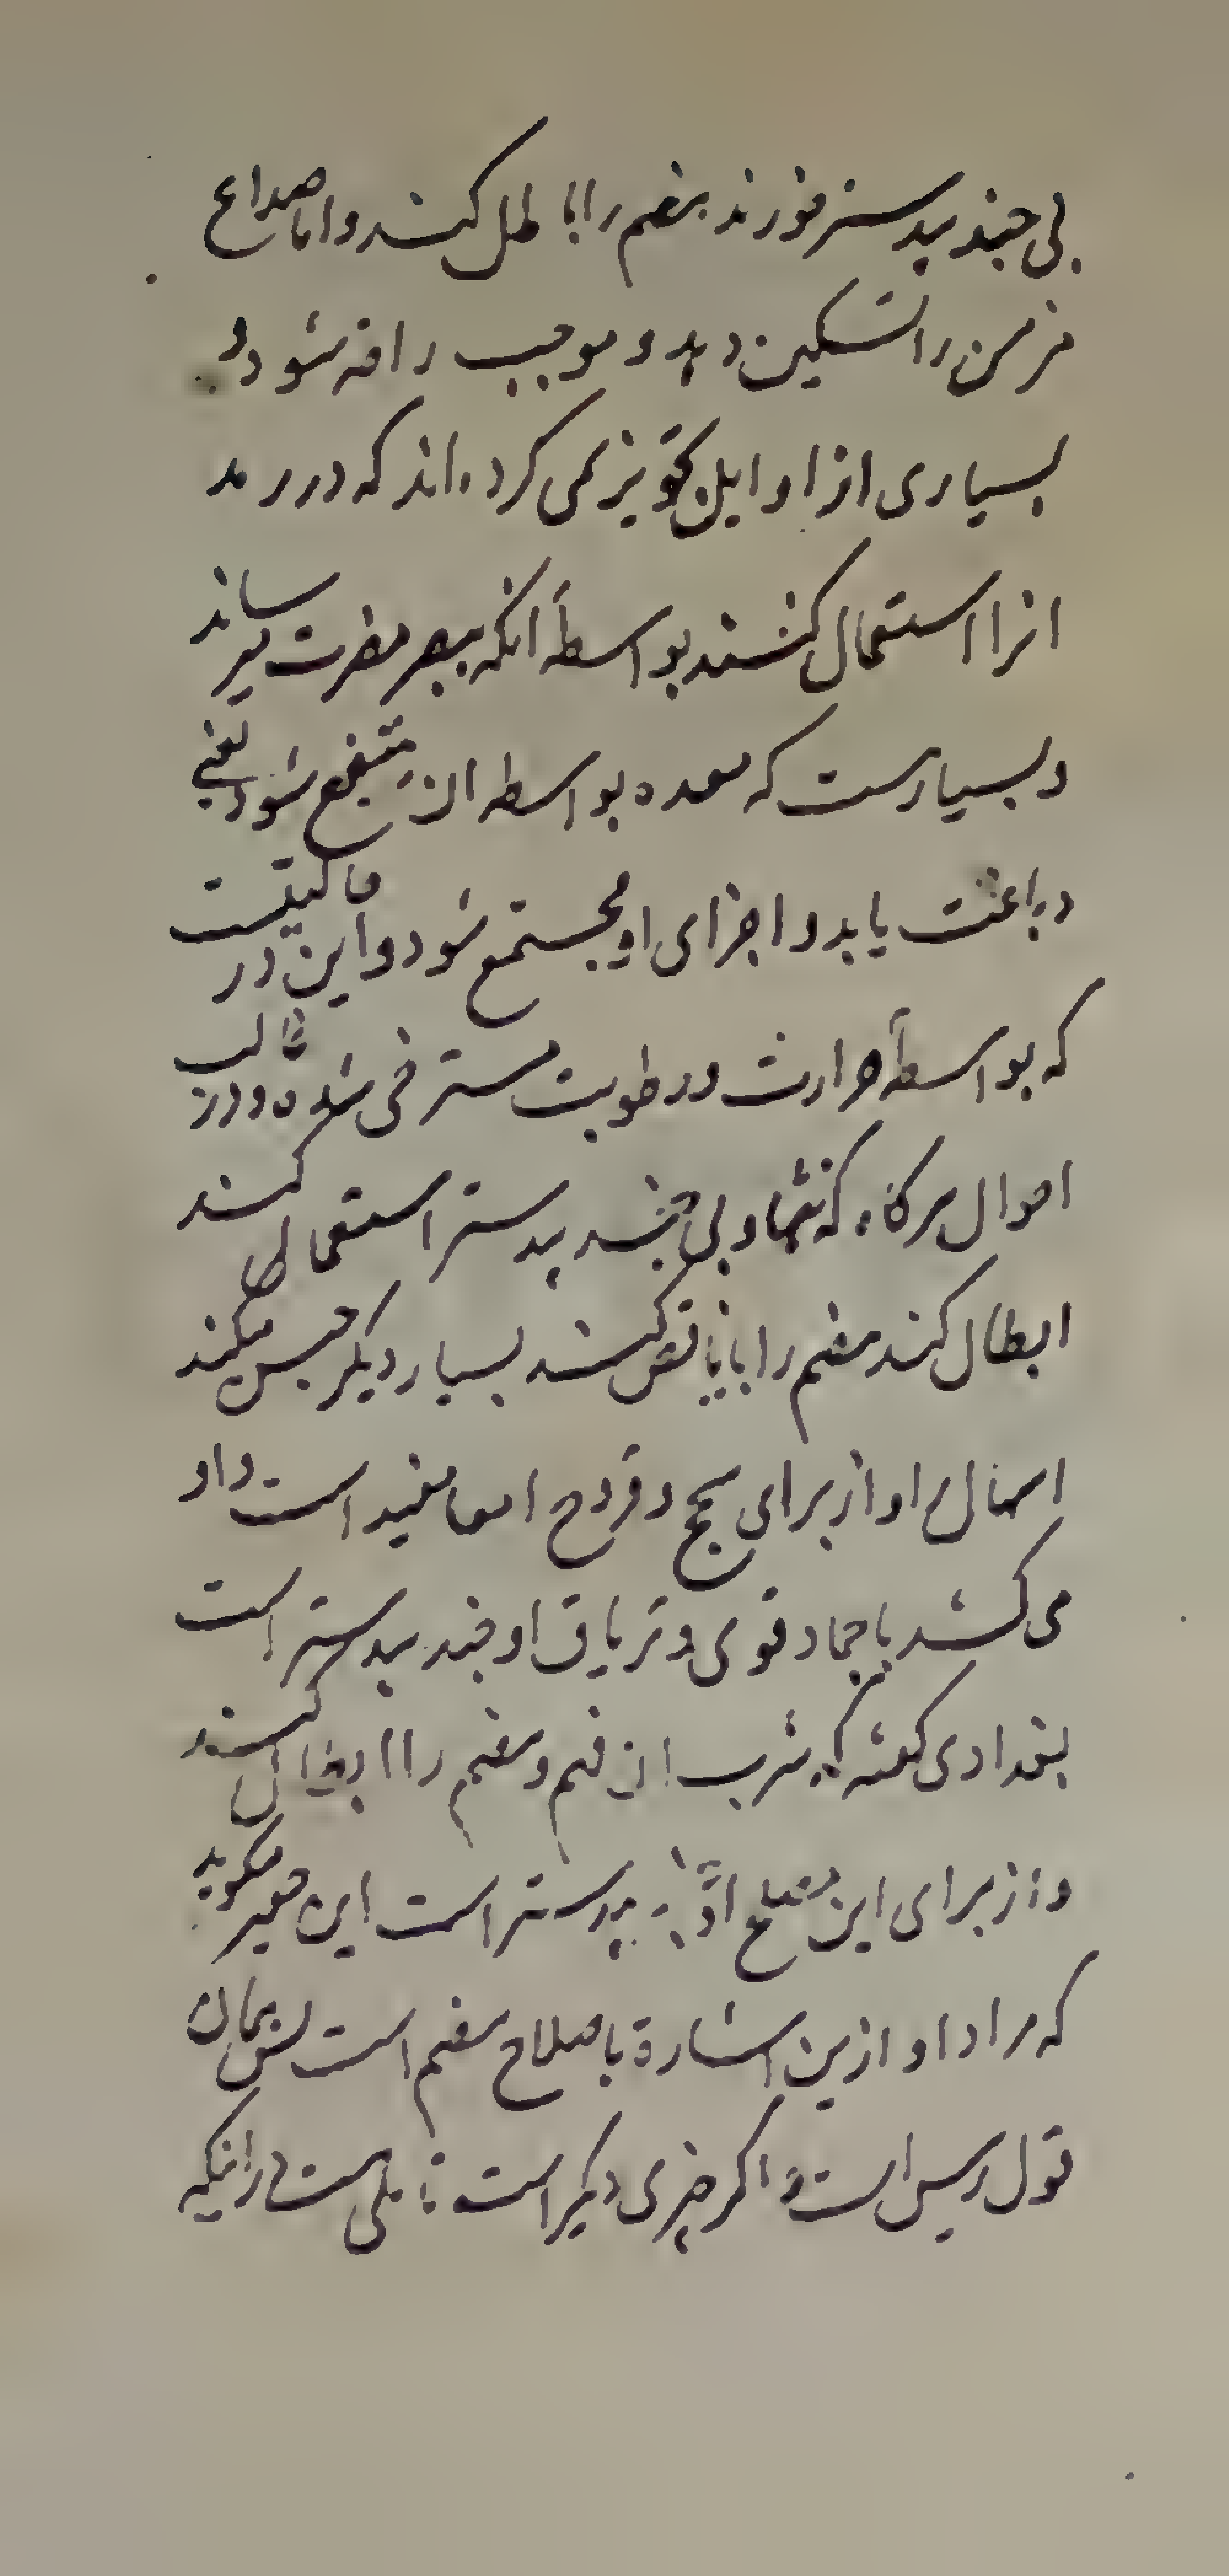 بی جندبیدستر خورند هضم را باطل کند و اما صداع
مزمن را تسکین دهد و موجب رافه شود و
بسیاری از اوایل تجویز نمی کرده‌اند که در رمد
انرا استعمال کنند بواسطهٔ انکه ببصر مضرت میرساند
و بسیارست که معده بواسطه ان منتفع شود یعنی
دباغت یابد و اجزای او مجتمع شود و این در حالتیست
که بواسطهٔ حرارت و رطوبت مسترخی شده و در غالب
احوال هرکاه که تنها و بی جندبیدستر استعمال کنند
ابطال کند هضم را یا ناقص کند بسیار دیکر حبس میکند
اسهال را و از برای سحج و قروح امعا مفید است و او
می کشد باجماد قوی و تریاق او جندبیدستر است
بغدادی کفته که شرب ان فهم و هضم را ابطال کند
و از برای این مصلح او بیدستر است این حقیر میکوید
که مراد او ازین اشارة باصلاح هضم است پس همان
قول رییس است و اکر چیزی دیکر است